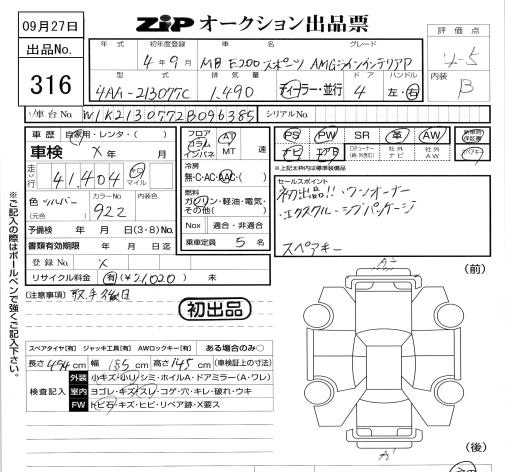 09月27日
ZIP オークション出品票
評価点
4.5
内装
B
出品No.
316
年式 初年度登録 車名 グレード
4年9月 MB E200スポーツ AMGシグインテリアP
型式 排気量 ドア ハンドル
4AA-213077C 1,490 ディーラー・並行 4 左・右
車台No. W1K2130772B096385 シリアルNo.
車歴 自家用・レンタ・( )
車検 X 年 月
走行 41,404 キロ マイル
色 シルバー
(元色)
カラーNo. 922
内装色
予備検 年 月 日(3・8)No.
書類有効期限 年 月 日迄
登録No. X
リサイクル料金 有(¥21,020) 未
フロア コラム インパネ AT MT 速
冷房
無・C・AC・AAC・( )
燃料
ガソリン・軽油・電気・
その他( )
Nox 適合・非適合
乗車定員 5 名
PS PW SR 革 AW
ナビ エアB 社外ナビ 社外AW
※上記太枠内は標準装備品
セールスポイント
初出品!!・ワンオーナー
・エクスクルーシブパッケージ
スペアキー
(注意事項)
初出品
※ご記入の際はボールペンで強くご記入下さい。
(前)
スペアタイヤ[有] ジャッキ工具[有] AWロックキー[有] ある場合のみ○
長さ 494 cm 幅 185 cm 高さ 145 cm (車検証上の寸法)
検査記入
外装 小キズ・小U・シミ・ホイルA・ドアミラー(A・ワレ)
室内 ヨゴレ・キズ・スレ・コゲ・穴・キレ・破れ・ウキ
FW トビ石・キズ・ヒビ・リペア跡・X要ス
(後)